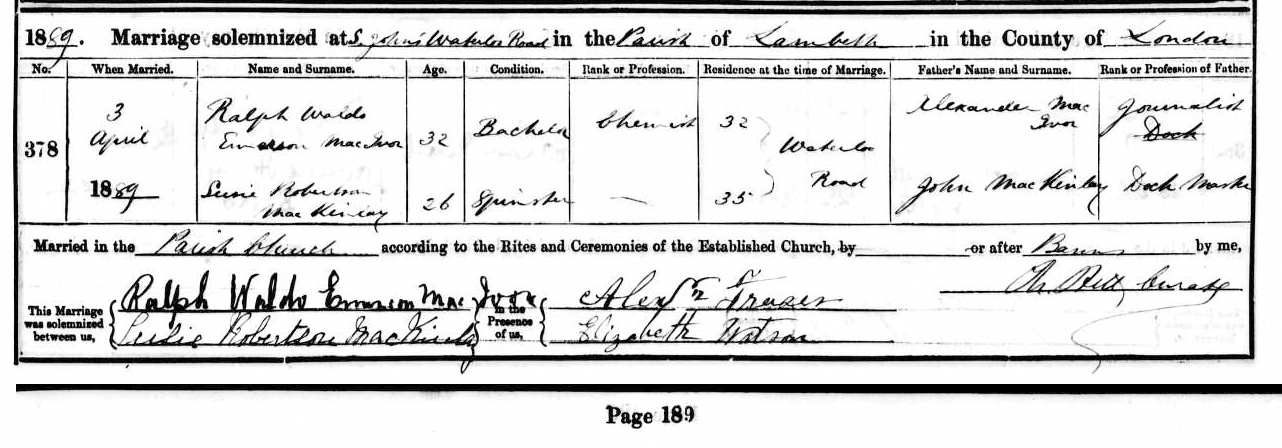 1889. Marriage solemnized at S. John's Waterloo Road in the Parish of Lambeth in the County of London
No. When Married. Name and Surname. Age. Condition. Rank or Profession. Residence at the time of Marriage. Father's Name and Surname. Rank or Profession of Father.
378 3 April 1889 Ralph Waldo Emerson MacIvor 32 Bachelor Chemist 32 Waterloo Road Alexander Mac Ivor Journalist Dock
Susie Robertson Mac Kinlay 26 Spinster — 35 John MacKinlay Dock Master
Married in the Parish Church according to the Rites and Ceremonies of the Established Church, by or after Banns by me,
Curate
This Marriage was solemnized between us, Ralph Waldo Emerson Mac Ivor In the Presence of us, Alexr Fraser
Susie Robertson MacKinlay Elizabeth Watson
Page 189